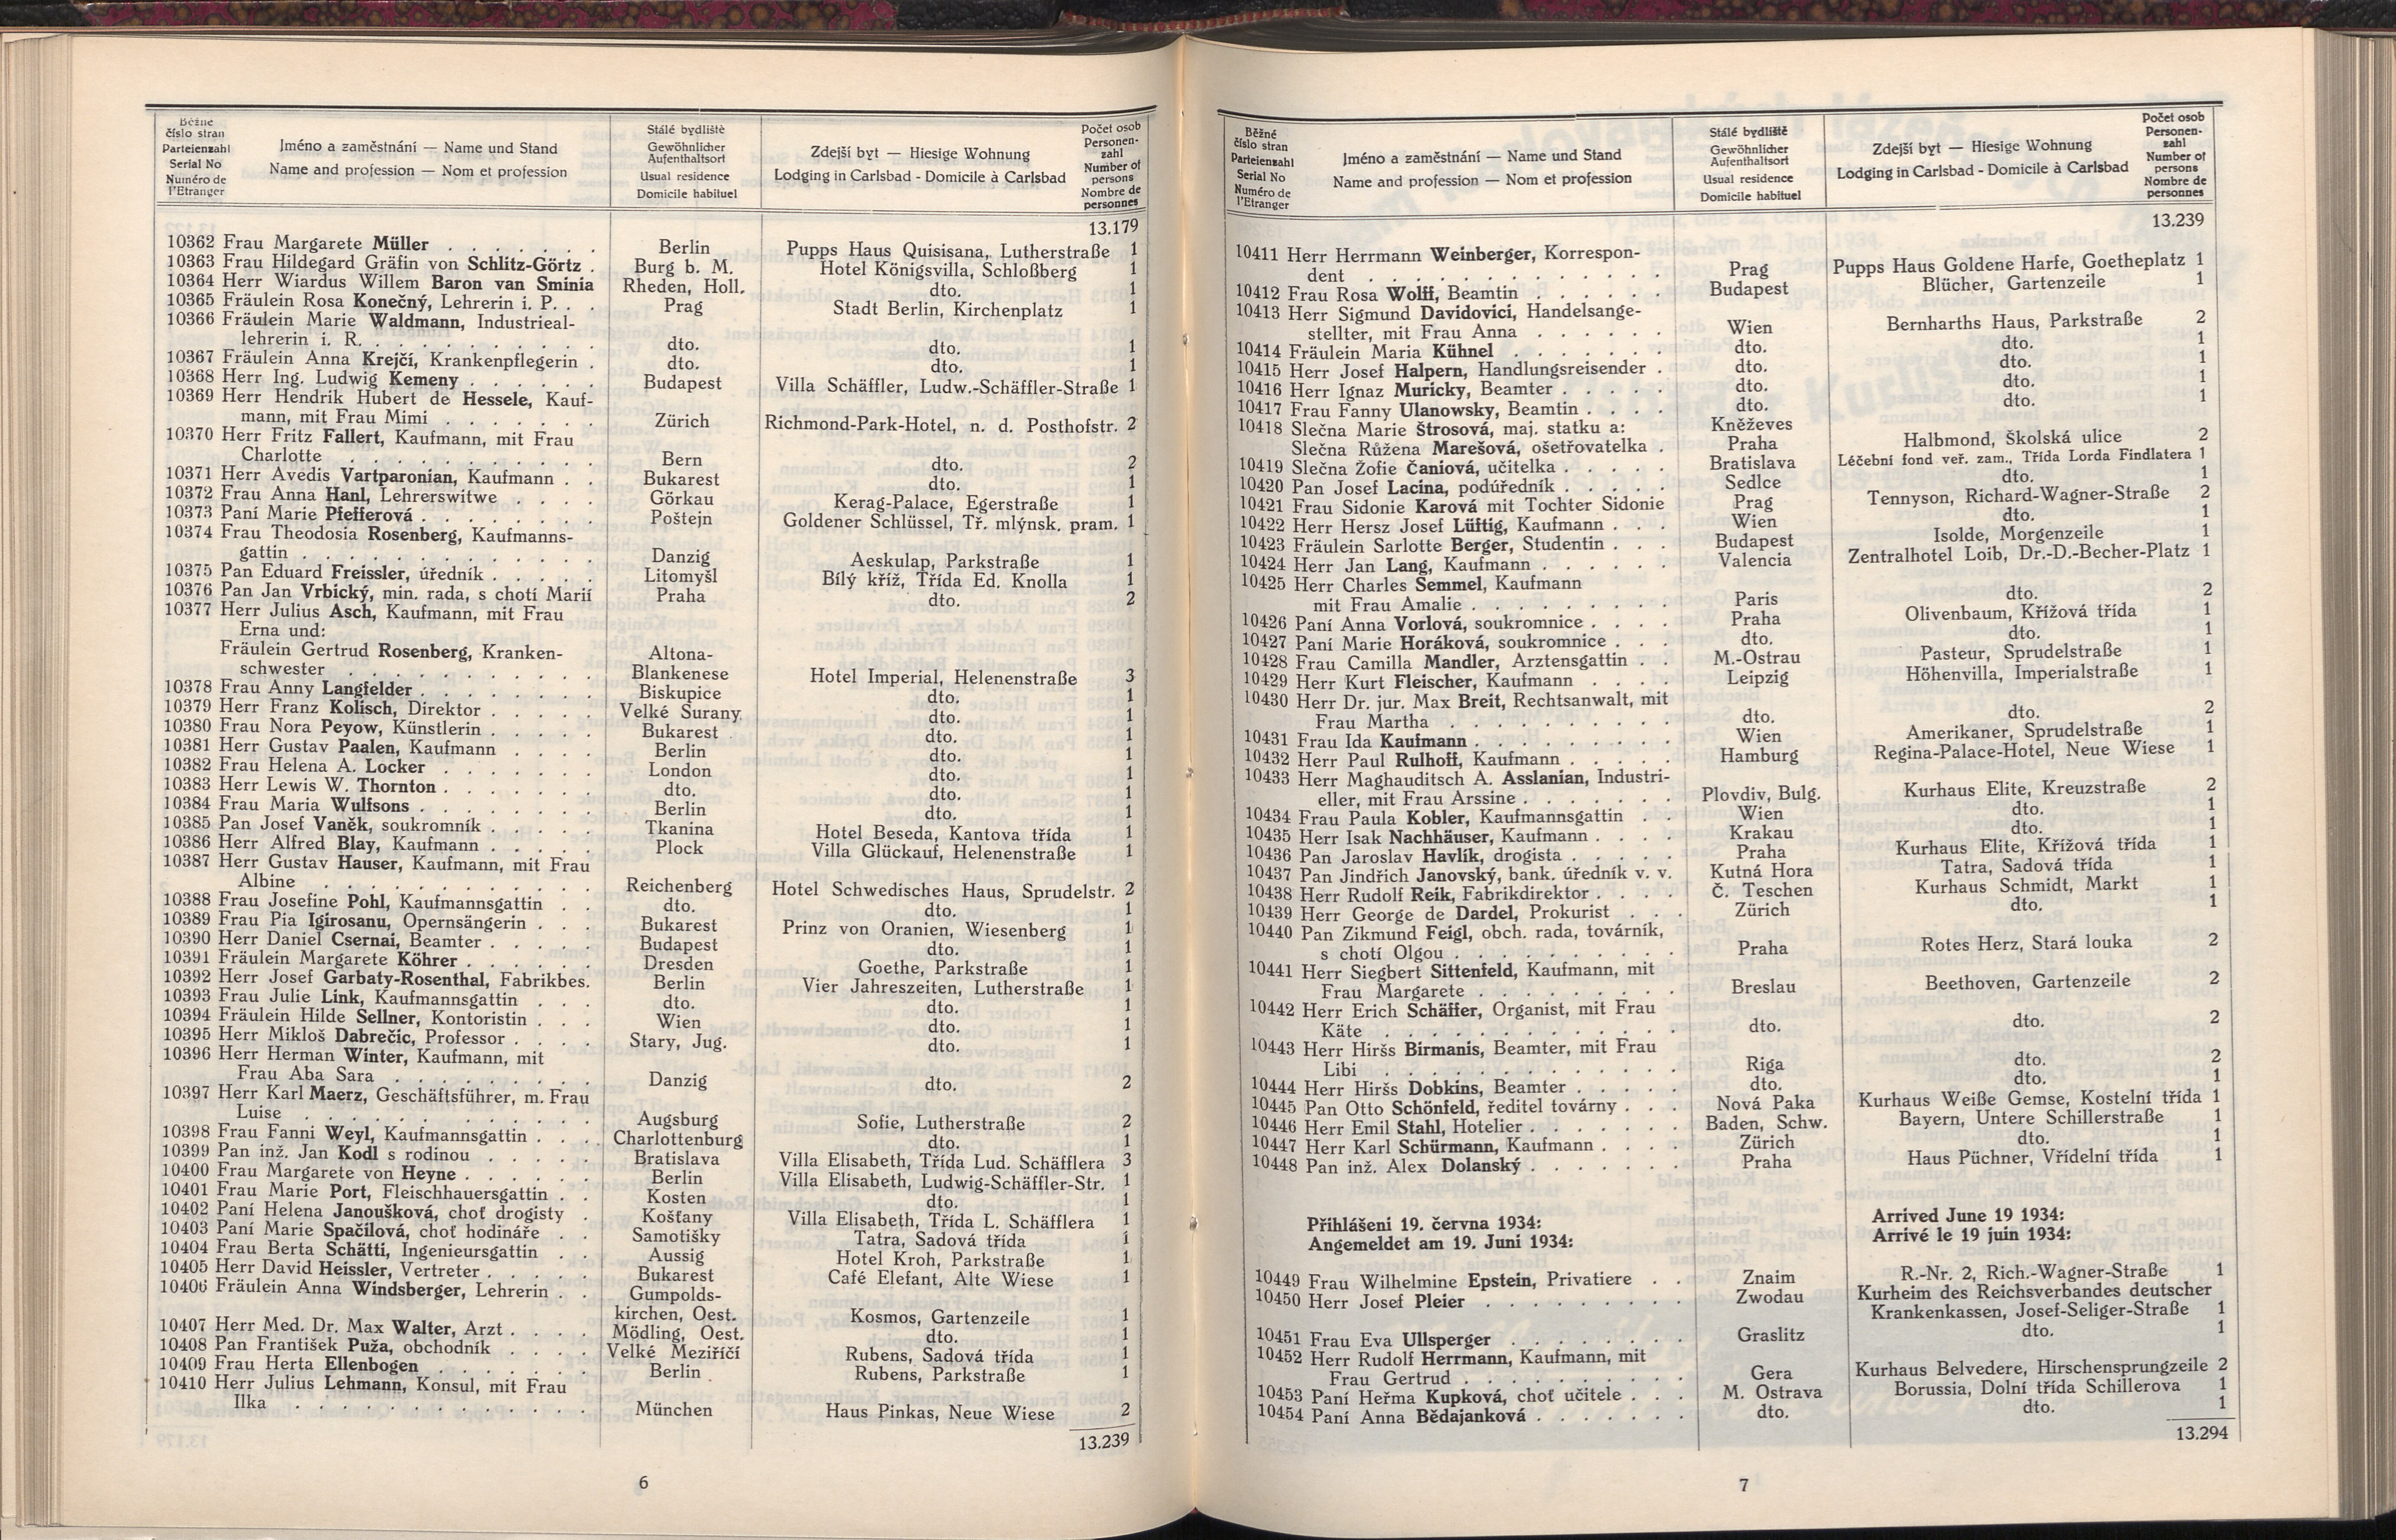 Běžné
číslo stran
Parteienzahl
Serial No
Numéro de
l'Etranger
Jméno a zaměstnání — Name und Stand
Name and profession — Nom et profession
Stálé bydliště
Gewöhnlicher
Aufenthaltsort
Usual residence
Domicile habituel
Zdejší byt — Hiesige Wohnung
Lodging in Carlsbad - Domicile à Carlsbad
Počet osob
Personen-
zahl
Number of
persons
Nombre de
personnes
13.179
10362 Frau Margarete Müller . . . . . . . Berlin Pupps Haus Quisisana, Lutherstraße 1
10363 Frau Hildegard Gräfin von Schlitz-Görtz . Burg b. M. Hotel Königsvilla, Schloßberg 1
10364 Herr Wiardus Willem Baron van Sminia Rheden, Holl. dto. 1
10365 Fräulein Rosa Konečný, Lehrerin i. P. . . Prag Stadt Berlin, Kirchenplatz 1
10366 Fräulein Marie Waldmann, Industrieal-
lehrerin i. R. . . . . . . . . . . dto. dto. 1
10367 Fräulein Anna Krejčí, Krankenpflegerin . dto. dto. 1
10368 Herr Ing. Ludwig Kemeny . . . . . . Budapest Villa Schäffler, Ludw.-Schäffler-Straße 1
10369 Herr Hendrik Hubert de Hessele, Kauf-
mann, mit Frau Mimi . . . . . . . Zürich Richmond-Park-Hotel, n. d. Posthofstr. 2
10370 Herr Fritz Fallert, Kaufmann, mit Frau
Charlotte . . . . . . . . . . . Bern dto. 2
10371 Herr Avedis Vartparonian, Kaufmann . . Bukarest dto. 1
10372 Frau Anna Hanl, Lehrerswitwe . . . . Görkau Kerag-Palace, Egerstraße 1
10373 Paní Marie Pfefferová . . . . . . . . Poštejn Goldener Schlüssel, Tř. mlýnsk. pram. 1
10374 Frau Theodosia Rosenberg, Kaufmanns-
gattin . . . . . . . . . . . . Danzig Aeskulap, Parkstraße 1
10375 Pan Eduard Freissler, úředník . . . . . Litomyšl Bílý kříž, Třída Ed. Knolla 1
10376 Pan Jan Vrbický, min. rada, s chotí Marií Praha dto. 2
10377 Herr Julius Asch, Kaufmann, mit Frau
Erna und:
Fräulein Gertrud Rosenberg, Kranken- Altona-
schwester . . . . . . . . . . . Blankenese Hotel Imperial, Helenenstraße 3
10378 Frau Anny Langfelder . . . . . . . . Biskupice dto. 1
10379 Herr Franz Kolisch, Direktor . . . . . Velké Surany dto. 1
10380 Frau Nora Peyow, Künstlerin . . . . . Bukarest dto. 1
10381 Herr Gustav Paalen, Kaufmann . . . . Berlin dto. 1
10382 Frau Helena A. Locker . . . . . . . London dto. 1
10383 Herr Lewis W. Thornton . . . . . . . dto. dto. 1
10384 Frau Maria Wulfsons . . . . . . . . Berlin dto. 1
10385 Pan Josef Vaněk, soukromník . . . . . Tkanina Hotel Beseda, Kantova třída 1
10386 Herr Alfred Blay, Kaufmann . . . . . Plock Villa Glückauf, Helenenstraße 1
10387 Herr Gustav Hauser, Kaufmann, mit Frau
Albine . . . . . . . . . . . . Reichenberg Hotel Schwedisches Haus, Sprudelstr. 2
10388 Frau Josefine Pohl, Kaufmannsgattin . . dto. dto. 1
10389 Frau Pia Igirosanu, Opernsängerin . . . Bukarest Prinz von Oranien, Wiesenberg 1
10390 Herr Daniel Csernai, Beamter . . . . . Budapest dto. 1
10391 Fräulein Margarete Köhrer . . . . . . Dresden Goethe, Parkstraße 1
10392 Herr Josef Garbaty-Rosenthal, Fabrikbes. Berlin Vier Jahreszeiten, Lutherstraße 1
10393 Frau Julie Link, Kaufmannsgattin . . . dto. dto. 1
10394 Fräulein Hilde Sellner, Kontoristin . . . Wien dto. 1
10395 Herr Mikloš Dabrečic, Professor . . . . Stary, Jug. dto. 1
10396 Herr Herman Winter, Kaufmann, mit
Frau Aba Sara . . . . . . . . . Danzig dto. 2
10397 Herr Karl Maerz, Geschäftsführer, m. Frau
Luise . . . . . . . . . . . . Augsburg Sofie, Lutherstraße 2
10398 Frau Fanni Weyl, Kaufmannsgattin . . . Charlottenburg dto. 1
10399 Pan inž. Jan Kodl s rodinou . . . . . Bratislava Villa Elisabeth, Třída Lud. Schäfflera 3
10400 Frau Margarete von Heyne . . . . . . Berlin Villa Elisabeth, Ludwig-Schäffler-Str. 1
10401 Frau Marie Port, Fleischhauersgattin . . Kosten dto. 1
10402 Paní Helena Janoušková, choť drogisty . Košťany Villa Elisabeth, Třída L. Schäfflera 1
10403 Paní Marie Spačilová, choť hodináře . . Samotišky Tatra, Sadová třída 1
10404 Frau Berta Schätti, Ingenieursgattin . . Aussig Hotel Kroh, Parkstraße 1
10405 Herr David Heissler, Vertreter . . . . . Bukarest Café Elefant, Alte Wiese 1
10406 Fräulein Anna Windsberger, Lehrerin . . Gumpolds-
kirchen, Oest. Kosmos, Gartenzeile 1
10407 Herr Med. Dr. Max Walter, Arzt . . . . Mödling, Oest. dto. 1
10408 Pan František Puža, obchodník . . . . Velké Meziříčí Rubens, Sadová třída 1
10409 Frau Herta Ellenbogen . . . . . . . Berlin Rubens, Parkstraße 1
10410 Herr Julius Lehmann, Konsul, mit Frau
Ilka . . . . . . . . . . . . . München Haus Pinkas, Neue Wiese 2
13.239
6
Běžné
číslo stran
Parteienzahl
Serial No
Numéro de
l'Etranger
Jméno a zaměstnání — Name und Stand
Name and profession — Nom et profession
Stálé bydliště
Gewöhnlicher
Aufenthaltsort
Usual residence
Domicile habituel
Zdejší byt — Hiesige Wohnung
Lodging in Carlsbad - Domicile à Carlsbad
Počet osob
Personen-
zahl
Number of
persons
Nombre de
personnes
13.239
10411 Herr Herrmann Weinberger, Korrespon-
dent . . . . . . . . . . . . Prag Pupps Haus Goldene Harfe, Goetheplatz 1
10412 Frau Rosa Wolff, Beamtin . . . . . . Budapest Blücher, Gartenzeile 1
10413 Herr Sigmund Davidovici, Handelsange-
stellter, mit Frau Anna . . . . . . Wien Bernharths Haus, Parkstraße 2
10414 Fräulein Maria Kühnel . . . . . . . dto. dto. 1
10415 Herr Josef Halpern, Handlungsreisender . dto. dto. 1
10416 Herr Ignaz Muricky, Beamter . . . . . dto. dto. 1
10417 Frau Fanny Ulanowsky, Beamtin . . . . dto. dto. 1
10418 Slečna Marie Štrosová, maj. statku a: Kněževes
Slečna Růžena Marešová, ošetřovatelka . Praha Halbmond, Školská ulice 2
10419 Slečna Žofie Čaniová, učitelka . . . . . Bratislava Léčební fond veř. zam., Třída Lorda Findlatera 1
10420 Pan Josef Lacina, podúředník . . . . . Sedlce dto. 1
10421 Frau Sidonie Karová mit Tochter Sidonie Prag Tennyson, Richard-Wagner-Straße 2
10422 Herr Hersz Josef Lüftig, Kaufmann . . . Wien dto. 1
10423 Fräulein Sarlotte Berger, Studentin . . . Budapest Isolde, Morgenzeile 1
10424 Herr Jan Lang, Kaufmann . . . . . . Valencia Zentralhotel Loib, Dr.-D.-Becher-Platz 1
10425 Herr Charles Semmel, Kaufmann
mit Frau Amalie . . . . . . . . . Paris dto. 2
10426 Paní Anna Vorlová, soukromnice . . . . Praha Olivenbaum, Křížová třída 1
10427 Paní Marie Horáková, soukromnice . . . dto. dto. 1
10428 Frau Camilla Mandler, Arztensgattin . . M.-Ostrau Pasteur, Sprudelstraße 1
10429 Herr Kurt Fleischer, Kaufmann . . . . Leipzig Höhenvilla, Imperialstraße 1
10430 Herr Dr. jur. Max Breit, Rechtsanwalt, mit
Frau Martha . . . . . . . . . . dto. dto. 2
10431 Frau Ida Kaufmann . . . . . . . . . Wien Amerikaner, Sprudelstraße 1
10432 Herr Paul Rulhoff, Kaufmann . . . . . Hamburg Regina-Palace-Hotel, Neue Wiese 1
10433 Herr Maghauditsch A. Asslanian, Industri-
eller, mit Frau Arssine . . . . . . . Plovdiv, Bulg. Kurhaus Elite, Kreuzstraße 2
10434 Frau Paula Kobler, Kaufmannsgattin . . Wien dto. 1
10435 Herr Isak Nachhäuser, Kaufmann . . . . Krakau dto. 1
10436 Pan Jaroslav Havlík, drogista . . . . . Praha Kurhaus Elite, Křížová třída 1
10437 Pan Jindřich Janovský, bank. úředník v. v. Kutná Hora Tatra, Sadová třída 1
10438 Herr Rudolf Reik, Fabrikdirektor . . . . Č. Teschen Kurhaus Schmidt, Markt 1
10439 Herr George de Dardel, Prokurist . . . Zürich dto. 1
10440 Pan Zikmund Feigl, obch. rada, továrník,
s chotí Olgou . . . . . . . . . . Praha Rotes Herz, Stará louka 2
10441 Herr Siegbert Sittenfeld, Kaufmann, mit
Frau Margarete . . . . . . . . . Breslau Beethoven, Gartenzeile 2
10442 Herr Erich Schäffer, Organist, mit Frau
Käte . . . . . . . . . . . . . dto. dto. 2
10443 Herr Hiršs Birmanis, Beamter, mit Frau
Libi . . . . . . . . . . . . . Riga dto. 2
10444 Herr Hiršs Dobkins, Beamter . . . . . dto. dto. 1
10445 Pan Otto Schönfeld, ředitel továrny . . . Nová Paka Kurhaus Weiße Gemse, Kostelní třída 1
10446 Herr Emil Stahl, Hotelier . . . . . . . Baden, Schw. Bayern, Untere Schillerstraße 1
10447 Herr Karl Schürmann, Kaufmann . . . . Zürich dto. 1
10448 Pan inž. Alex Dolanský . . . . . . . Praha Haus Püchner, Vřídelní třída 1
Přihlášeni 19. června 1934: Arrived June 19 1934:
Angemeldet am 19. Juni 1934: Arrivé le 19 juin 1934:
10449 Frau Wilhelmine Epstein, Privatiere . . Znaim R.-Nr. 2, Rich.-Wagner-Straße 1
10450 Herr Josef Pleier . . . . . . . . . Zwodau Kurheim des Reichsverbandes deutscher
Krankenkassen, Josef-Seliger-Straße 1
10451 Frau Eva Ullsperger . . . . . . . . Graslitz dto. 1
10452 Herr Rudolf Herrmann, Kaufmann, mit
Frau Gertrud . . . . . . . . . . Gera Kurhaus Belvedere, Hirschensprungzeile 2
10453 Paní Heřma Kupková, choť učitele . . . M. Ostrava Borussia, Dolní třída Schillerova 1
10454 Paní Anna Bědajanková . . . . . . . dto. dto. 1
13.294
7